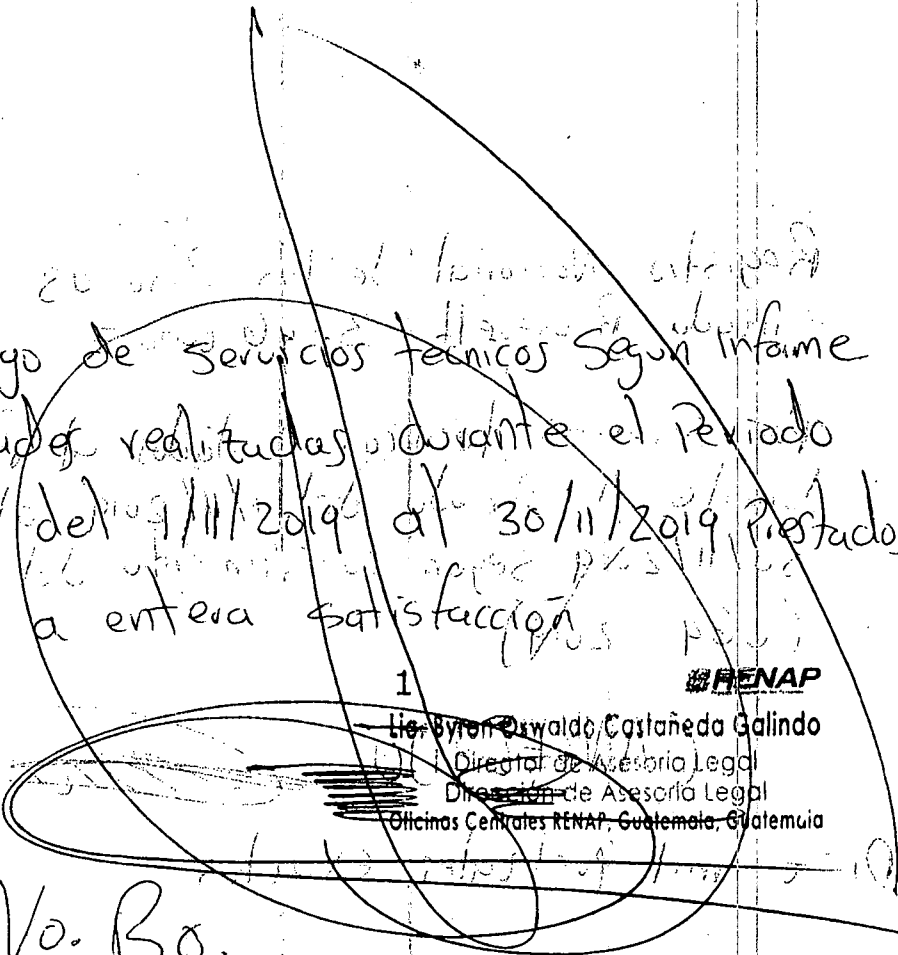 go de servicios técnicos Según informe
realizadas durante el Periodo
del 1/11/2019 al 30/11/2019 Prestados
a entera satisfacción
1
RENAP
Lic. Byron Oswaldo Castañeda Galindo
Director de Asesoría Legal
Dirección de Asesoría Legal
Oficinas Centrales RENAP, Guatemala, Guatemala
Vo. Bo.